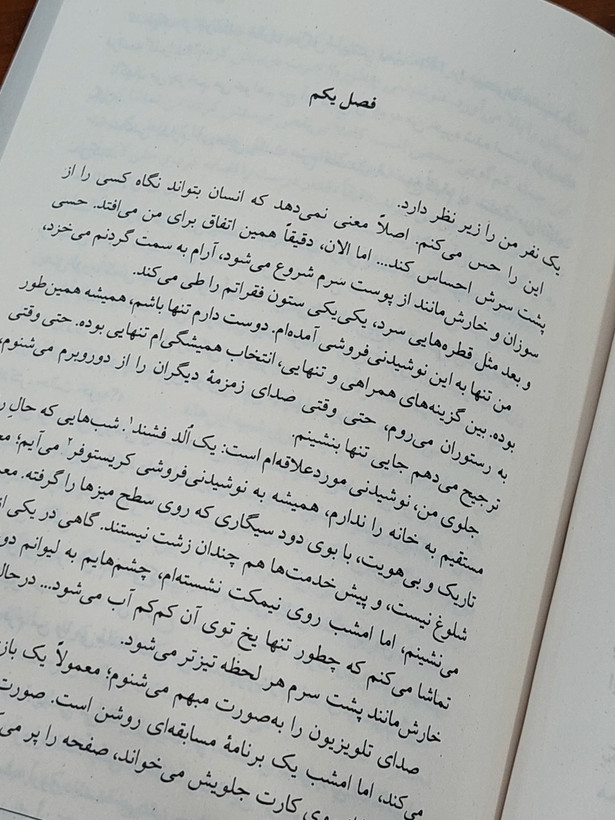 فصل یکم
یک نفر من را زیر نظر دارد.
این را حس می‌کنم. اصلاً معنی نمی‌دهد که انسان بتواند نگاه کسی را از
پشت سرش احساس کند... اما الان، دقیقاً همین اتفاق برای من می‌افتد. حسی
سوزان و خارش‌مانند از پوست سرم شروع می‌شود، آرام به سمت گردنم می‌خزد،
و بعد مثل قطره‌هایی سرد، یکی‌یکی ستون فقراتم را طی می‌کند.
من تنها به این نوشیدنی‌فروشی آمده‌ام. دوست دارم تنها باشم، همیشه همین‌طور
بوده. بین گزینه‌های همراهی و تنهایی، انتخاب همیشگی‌ام تنهایی بوده. حتی وقتی
به رستوران می‌روم، حتی وقتی صدای زمزمهٔ دیگران را از دوروبرم می‌شنوم،
ترجیح می‌دهم جایی تنها بنشینم.
جلوی من، نوشیدنی موردعلاقه‌ام است: یک اُلد فشند۱. شب‌هایی که حالِ
مستقیم به خانه را ندارم، همیشه به نوشیدنی‌فروشی کریستوفر۲ می‌آیم؛
تاریک و بی‌هویت، با بوی دود سیگاری که روی سطح میزها را گرفته.
شلوغ نیست، و پیش‌خدمت‌ها هم چندان زشت نیستند. گاهی در یکی
می‌نشینم، اما امشب روی نیمکت نشسته‌ام، چشم‌هایم به لیوانم
تماشا می‌کنم که چطور تنها یخ توی آن کم‌کم آب می‌شود...
خارش‌مانند پشت سرم هر لحظه تیزتر می‌شود.
صدای تلویزیون را به‌صورت مبهم می‌شنوم؛ معمولاً یک
می‌کند، اما امشب یک برنامهٔ مسابقه‌ای روشن است. صورت
کارت جلویش می‌خواند، صفحه را پر